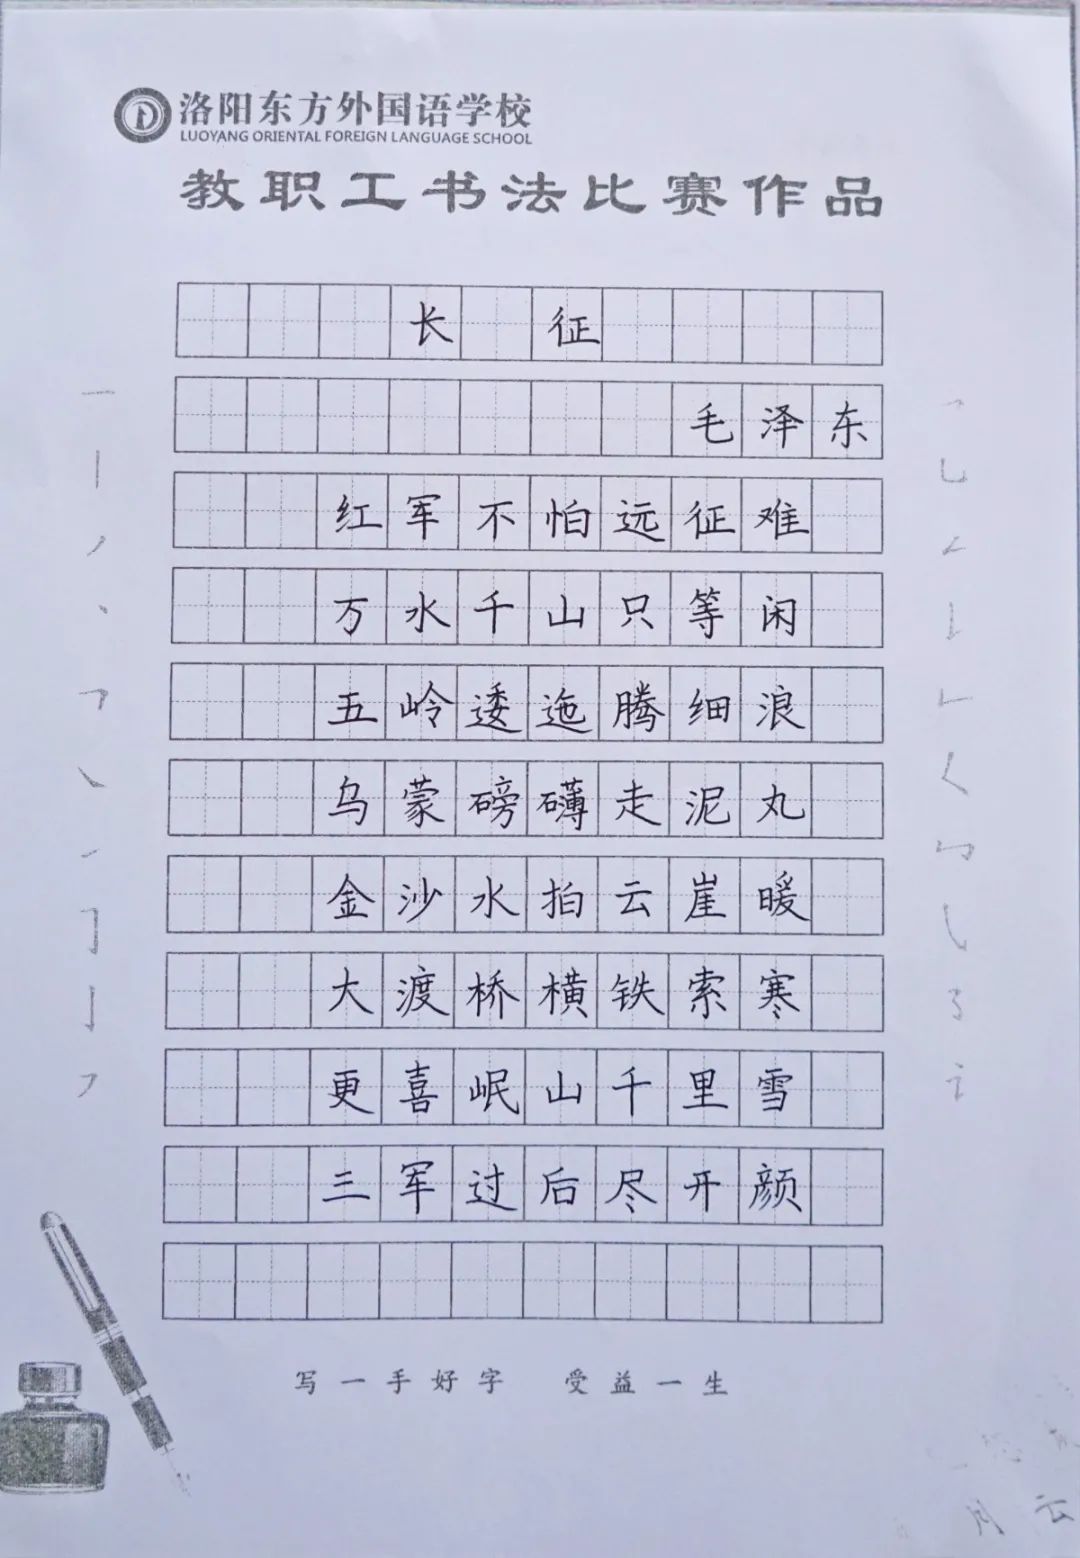 洛阳东方外国语学校
LUOYANG ORIENTAL FOREIGN LANGUAGE SCHOOL
教职工书法比赛作品
长征
毛泽东
红军不怕远征难
万水千山只等闲
五岭逶迤腾细浪
乌蒙磅礴走泥丸
金沙水拍云崖暖
大渡桥横铁索寒
更喜岷山千里雪
三军过后尽开颜
写一手好字 受益一生